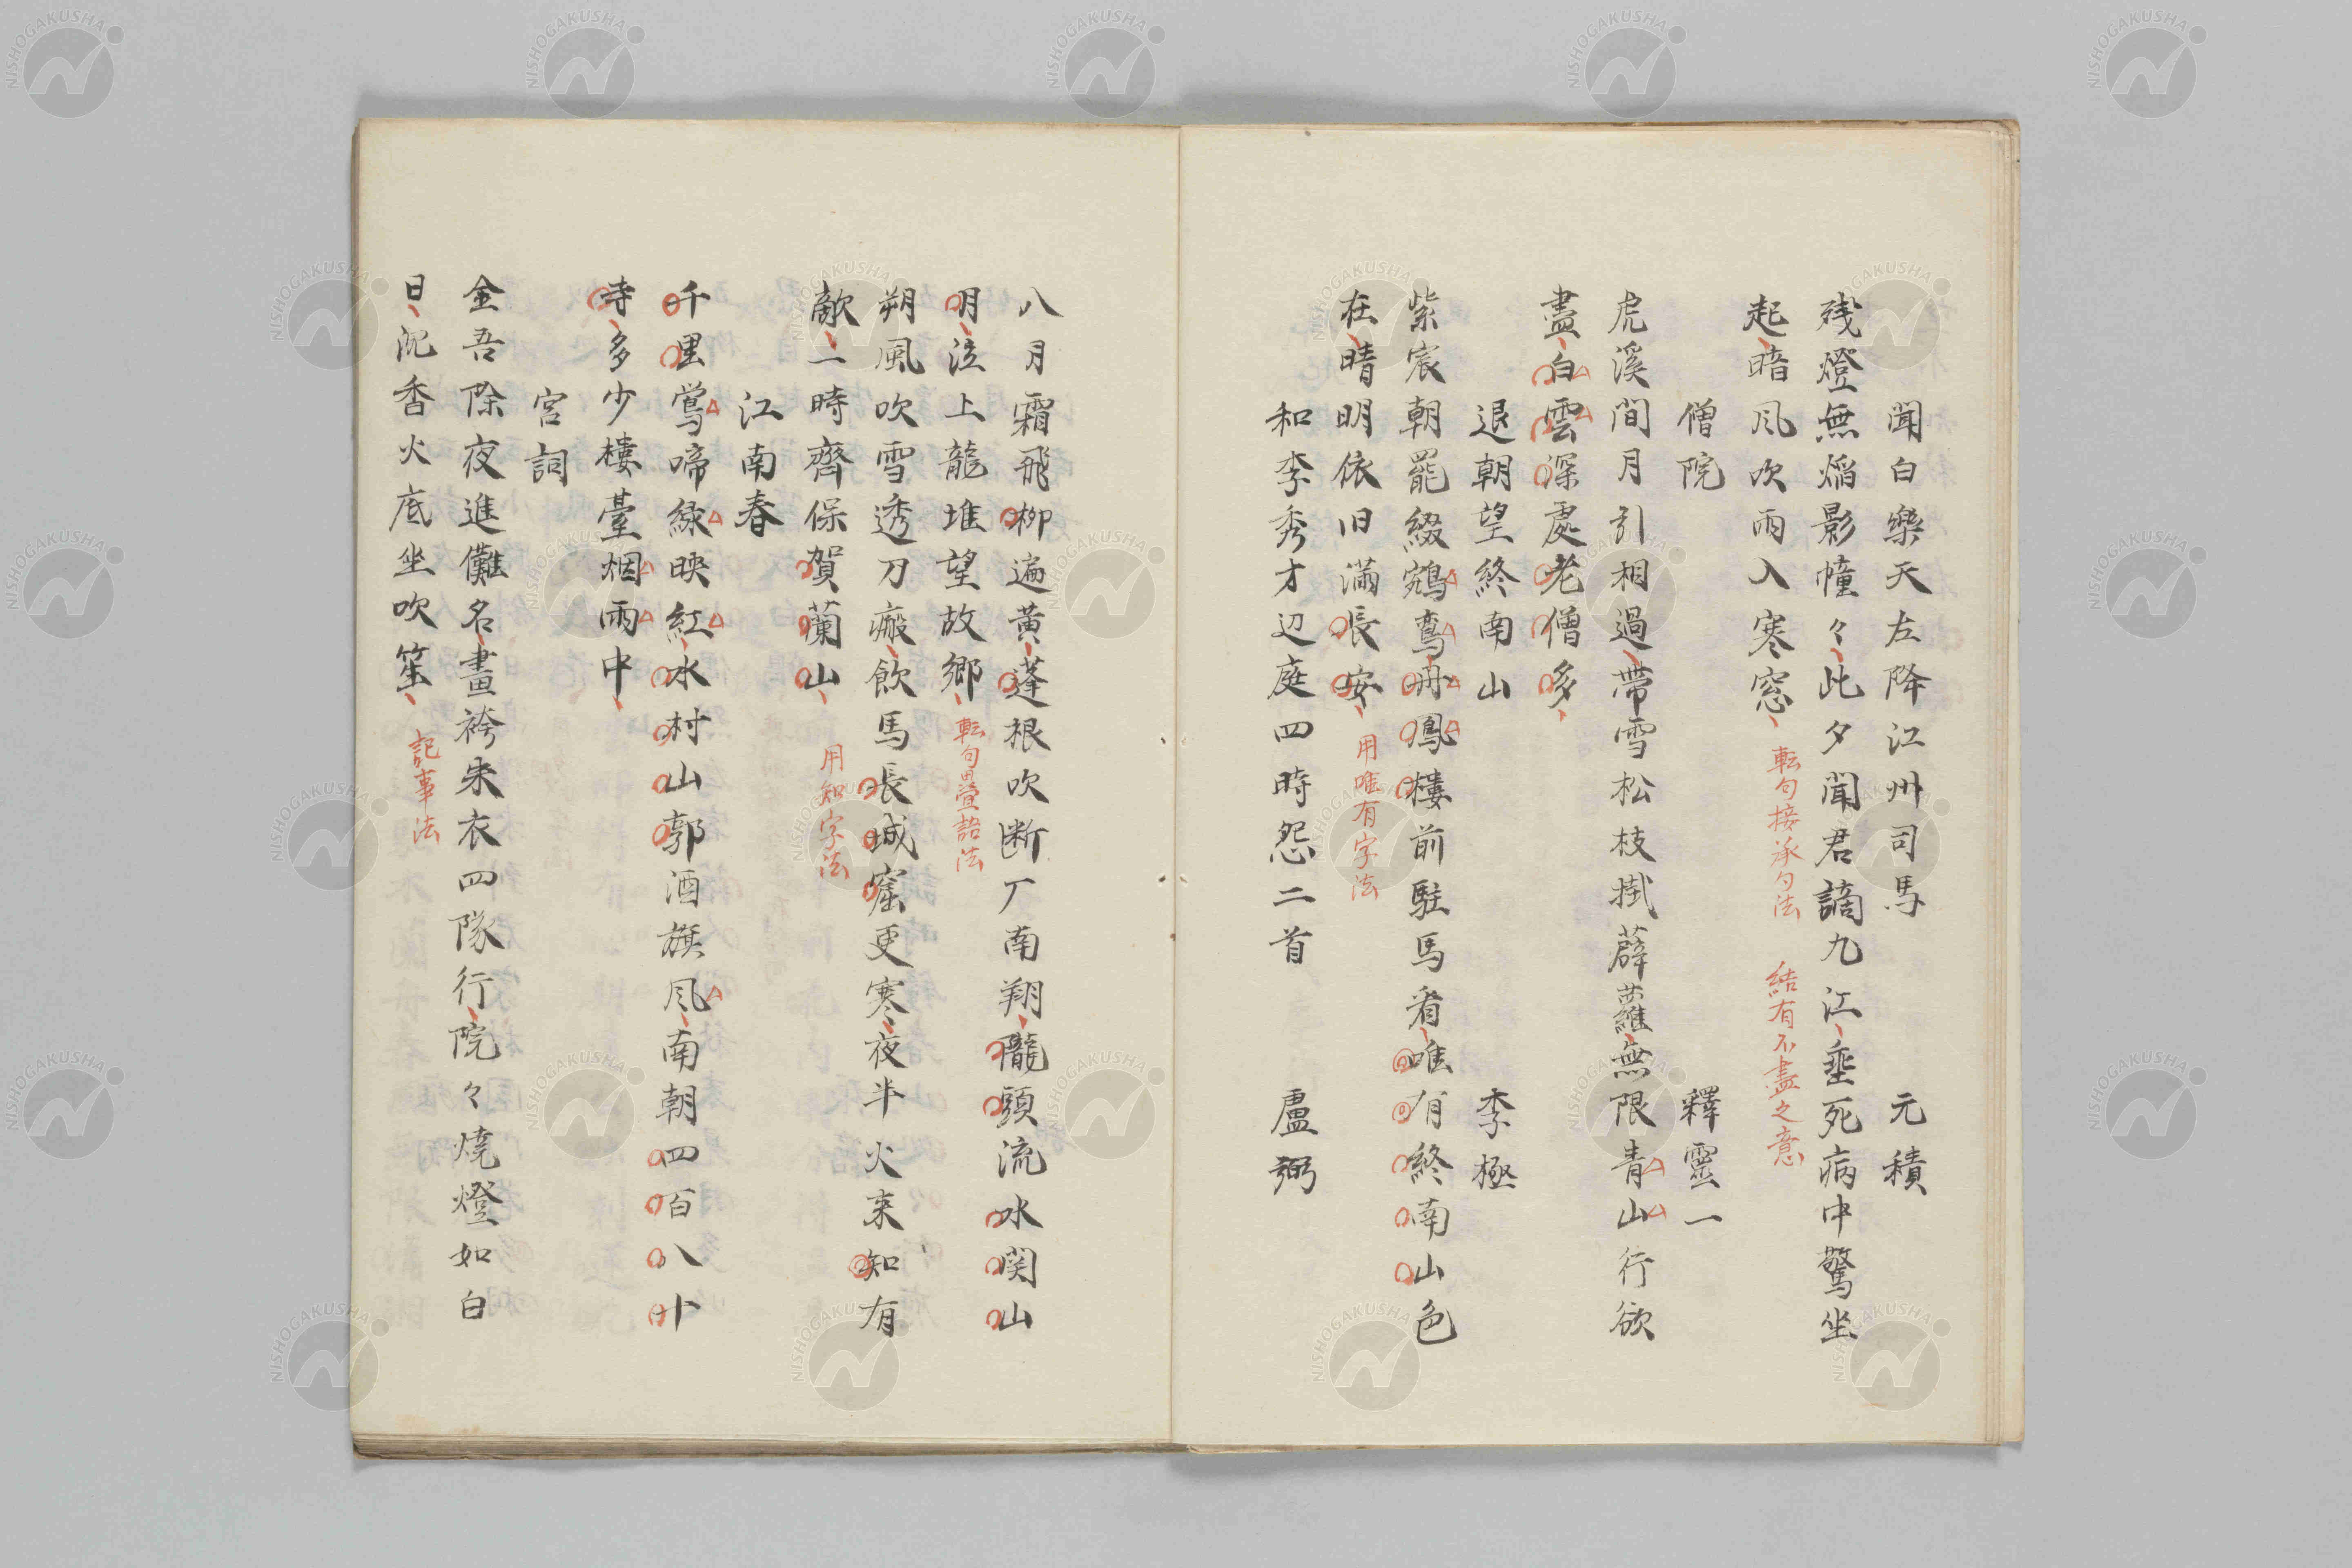 聞白樂天左降江州司馬　元積
残燈無焔影幢々此夕聞君謫九江垂死病中驚坐
起暗風吹雨入寒窓　転句接承句法　結有不盡之意
僧院　釋靈一
虎溪間月引相過帶雪松枝掛薜蘿無限青山行欲
盡白雲深處老僧多
退朝望終南山　李極
紫宸朝罷綴鵷鸞丹鳳樓前駐馬看唯有終南山色
在晴明依旧滿長安　用唯有字法
和李秀才辺庭四時怨二首　盧弼
八月霜飛柳遍黄蓬根吹断厂南翔隴頭流水関山
月泣上龍堆望故鄉　転句畳語法
朔風吹雪透刀瘢飲馬長城窟更寒夜半火来知有
敵一時齊保賀蘭山　用知字法
江南春
千里鶯啼緑映紅水村山郭酒旗風南朝四百八十
寺多少樓臺烟雨中
宮詞
金吾除夜進儺名畫袴朱衣四隊行院々燒燈如白
日沉香火底坐吹笙　記事法
NISHOGAKUSHA